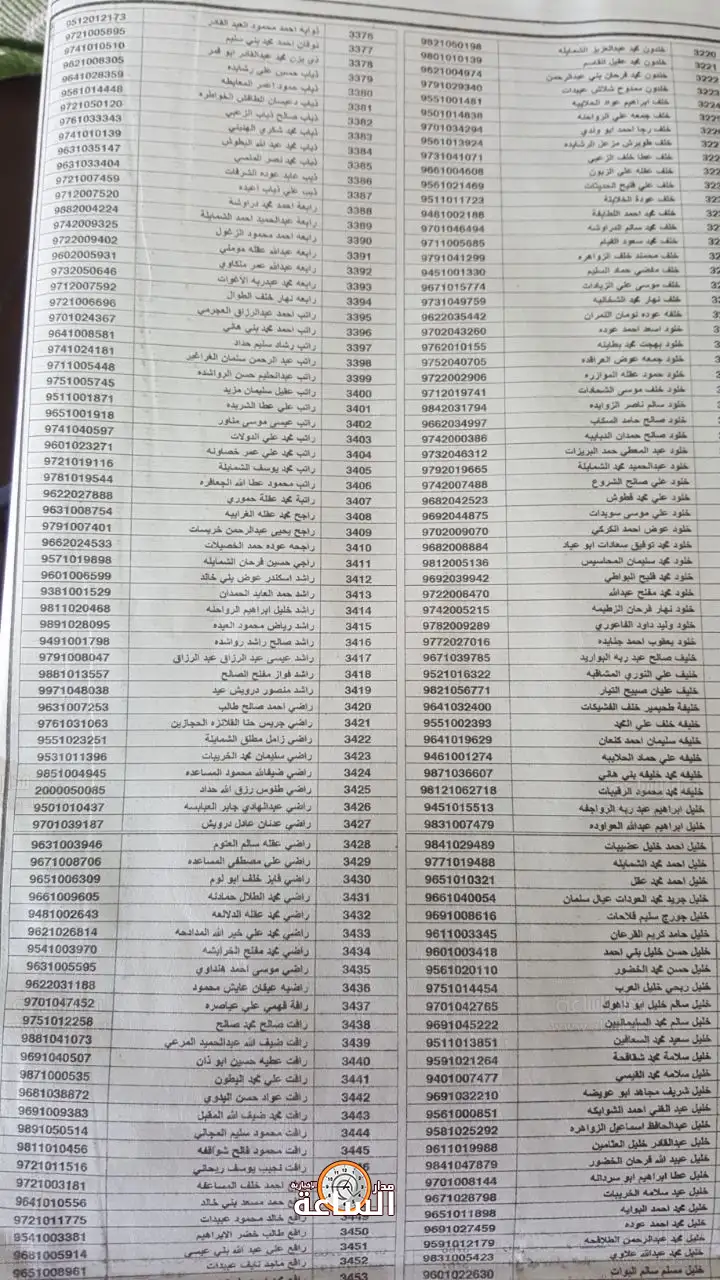 3220 خلدون محمد عبدالعزيز الشمايله 9821050198
3221 خلدون محمد عقيل القاسم 9801010139
3222 خلدون محمد فرحان بني عبدالرحمن 9621004974
3223 خلدون ممدوح شلاش عبيدات 9791029340
3224 خلف ابراهيم عواد الحلايبه 9551001481
خلف جمعه علي الرواحنه 9501014838
خلف رجا احمد ابو وندي 9701034294
خلف طويرش مزعل الرشايده 9561013924
خلف عطا خلف الزعبي 9731041071
خلف عقله علي الزيون 9661004608
خلف علي فليح الحديثات 9561021469
خلف عودة الخلايلة 9511011723
خلف محمد احمد اللطايفة 9481002188
خلف محمد سالم المراوشه 9701046494
خلف محمد سعود الغيام 9711005685
خلف محمد خلف الزواهره 9791041299
خلف مفضي حماد السليم 9451001330
خلف موسى علي الزيادات 9671015774
خلف نهار محمد الشخانبه 9731049759
خلفه عوده تومان النمران 9622035442
خلود اسعد احمد عوده 9702043260
خلود بهجت محمد بطاينه 9762010155
خلود جمعه عوض العراقده 9752040705
خلود حمود عقله الموازره 9722002906
خلود خلف موسى الشحادات 9712019741
خلود سالم ناصر الزوايده 9842031794
خلود صالح حامد السكاب 9662034997
خلود صالح حمدان الدبايبه 9742000386
خلود عبد المعطي حمد البريزات 9732046312
خلود عبدالحميد محمد الشمايلة 9792019665
خلود علي صالح الشروع 9742007488
خلود علي محمد قطوش 9682042523
خلود علي موسى سويدات 9692044875
خلود عوض احمد الكركي 9702009070
خلود محمد توفيق سعادات ابو عياد 9682008884
خلود محمد سليمان المحاسيس 9812005136
خلود محمد فليح البواطي 9692039942
خلود محمد مفلح عبدالله 9722006470
خلود نهار فرحان الزطيمه 9742005215
خلود وليد داود الفاعوري 9782009289
خلود يعقوب احمد جنايده 9772027016
خليف صالح عبد ربه البواريد 9671039785
خليف علي النوري المشاقبه 9521016322
خليف عليان صبيح النيار 9821056771
خليفة طحيمير خلف الفشيكات 9641032400
خليفه خلف علي المحمد 9551002393
خليفه سليمان احمد كنعان 9641019629
خليفه علي حماد الحلايبه 9461001274
خليفه محمد خليفه بني هاني 9871036607
خليفه محمد محمود الرقيبات 98121062718
خليل ابراهيم عبد ربه الرواجفه 9451015513
خليل ابراهيم عبدالله العواوده 9831007479
خليل احمد خليل عضيبات 9841029489
خليل احمد محمد الشمايله 9771019488
خليل احمد محمد عقل 9651010321
خليل جريد محمد العودات عيال سلمان 9661040054
خليل جورج سليم فلاحات 9691008616
خليل حامد كريم القرعان 9611003345
خليل حسن خليل بني احمد 9601003418
خليل حسن محمد الخضور 9561020110
خليل ربحي خليل العرب 9751014454
خليل سالم خليل ابو داهوك 9701042765
خليل سالم محمد السليمانيين 9691045222
خليل سعيد محمد السعافين 9511013851
خليل سلامة محمد شقاقحة 9591021264
خليل سلامه محمد القيسي 9401007477
خليل شريف مجاهد ابو عويضه 9691032210
خليل عبد الغني احمد الشوابكه 9561000851
خليل عبدالحافظ اسماعيل الزواهره 9581025292
خليل عبدالقادر خليل العثامين 9611019988
خليل عبيد الله فرحان الخضور 9841047879
خليل عطا ابراهيم ابو سردانه 9701008144
خليل عيد سلامه الخريبات 9671028798
خليل محمد احمد البوايه 9651011898
خليل محمد احمد عوده 9691027459
خليل محمد عبدالرحمن الطلافحه 9591012179
خليل محمد عبدالله علاوي 9831005423
خليل مسلم سالم البوات 9601022630
3376 احمد محمود العبد القادر 9512012173
3377 نوفان احمد محمد بني سليم 9721005895
3378 ذي يزن محمد عبدالقادر ابو قمر 9741010510
3379 ذياب حسين علي رشايده 9621008305
3380 ذياب حمود اعمر المعايطه 9641028359
3381 ذياب دعيسان الطافش الخواطره 9561014448
3382 ذياب صالح ذياب الزعبي 9721050120
3383 ذياب محمد شكري الهنيني 9761033343
3384 ذياب محمد عبد الله البطوش 9741010139
3385 ذياب محمد نصر 9631035147
3386 ذيب عايد عوده الشرفات 9631033404
3387 ذيب علي ذياب اعبده 9721007459
3388 رابعة احمد محمد دراوشة 9712007520
3389 رابعة عبدالحميد احمد الشمايلة 9882004224
3390 رابعه احمد محمود الزغول 9742009325
3391 رابعه عبدالله عقله مومني 9722009402
3392 رابعه عبدالله عمر ملكاوي 9602005931
3393 رابعه محمد عبدربه الاغوات 9732050646
3394 رابعه نهار خلف الطوال 9712007592
3395 راتب احمد عبدالرزاق العجرمي 9721006696
3396 راتب احمد محمد بني هاني 9701024367
3397 راتب رشاد سليم حداد 9641008581
3398 راتب عبد الرحمن سلمان الغراغير 9741024181
3399 راتب عبدالحليم حسن الرواشده 9711005448
3400 راتب عقيل سليمان مزيد 9751005745
3401 راتب علي عطا الشريده 9511001871
3402 راتب عيسى موسى مناور 9651001918
3403 راتب محمد علي الدولات 9741040597
3404 راتب محمد علي عمر خصاونه 9601023271
3405 راتب محمد يوسف الشمايلة 9721019116
3406 راتب محمود عطا الله الجعافره 9781019544
3407 راتبة محمد عقلة حموري 9622027888
3408 راجح محمد عقله الغرايبه 9631008754
3409 راجح يحيى عبدالرحمن خريسات 9791007401
3410 راجحه عوده حمد الخصيلات 9662024533
3411 راجي حسين فرحان الشمايله 9571019898
3412 راشد اسكندر عوض بني خالد 9601006599
3413 راشد حمد العايد الحمدان 9381001529
3414 راشد خليل ابراهيم الرواحله 9811020468
3415 راشد رياض محمود العيده 9891028095
3416 راشد صالح راشد رواشده 9491001798
3417 راشد عيسى عبد الرزاق عبد الرزاق 9791008047
3418 راشد فواز مفلح الصالح 9881013557
3419 راشد منصور درويش عيد 9971048038
3420 راضي احمد صالح طالب 9631007253
3421 راضي جريس حنا القلانزه الحجازين 9761031063
3422 راضي زامل مطلق الشمايلة 9551023251
3423 راضي سليمان محمد الخريبات 9531011396
3424 راضي ضيفالله محمود المساعده 9851004945
3425 راضي طنوس رزق الله حداد 2000050085
3426 راضي عبدالهادي جابر العبابسه 9501010437
3427 راضي عدنان عادل درويش 9701039187
3428 راضي عقله سالم العتوم 9631003946
3429 راضي علي مصطفى المساعده 9671008706
3430 راضي فايز خلف ابو لوم 9651006309
3431 راضي محمد الطلال حمادنه 9661009605
3432 راضي محمد عقله الدلالعه 9481002643
3433 راضي محمد علي خير الله المدادحه 9621026814
3434 راضي محمد مفلح الخرابشه 9541003970
3435 راضي موسى احمد هنداوي 9631005595
3436 راضيه عيفان عايش محمود 9622031188
3437 رافة فهمي علي عياصره 9701047452
3438 رافت صالح محمد صالح 9751012258
3439 رافت ضيف الله عبدالحميد المرعي 9881041073
3440 رافت عطيه حسين ابو ذان 9691040507
3441 رافت علي محمد البطون 9871000535
3442 رافت عواد حسن البدوي 9681038872
3443 رافت محمد ضيف الله المقبل 9691009383
3444 رافت محمود سليم المجالي 9891050514
3445 رافت محمود فالح شواقفه 9811010456
رافت نجيب يوسف ريحاني 9721011516
احمد خلف المساعفه 9721003181
حمد مسعد بني خالد 9641010556
3449 رافع خالد محمود عبيدات 9721011775
3450 رافع طالب خضر الابراهيم 9541003381
3451 رافع علي عبد الله بني عيسى 9681005914
3452 رافع ماجد نايف عبيدات 9651008961
3453
مدار الساعة
الاخبارية